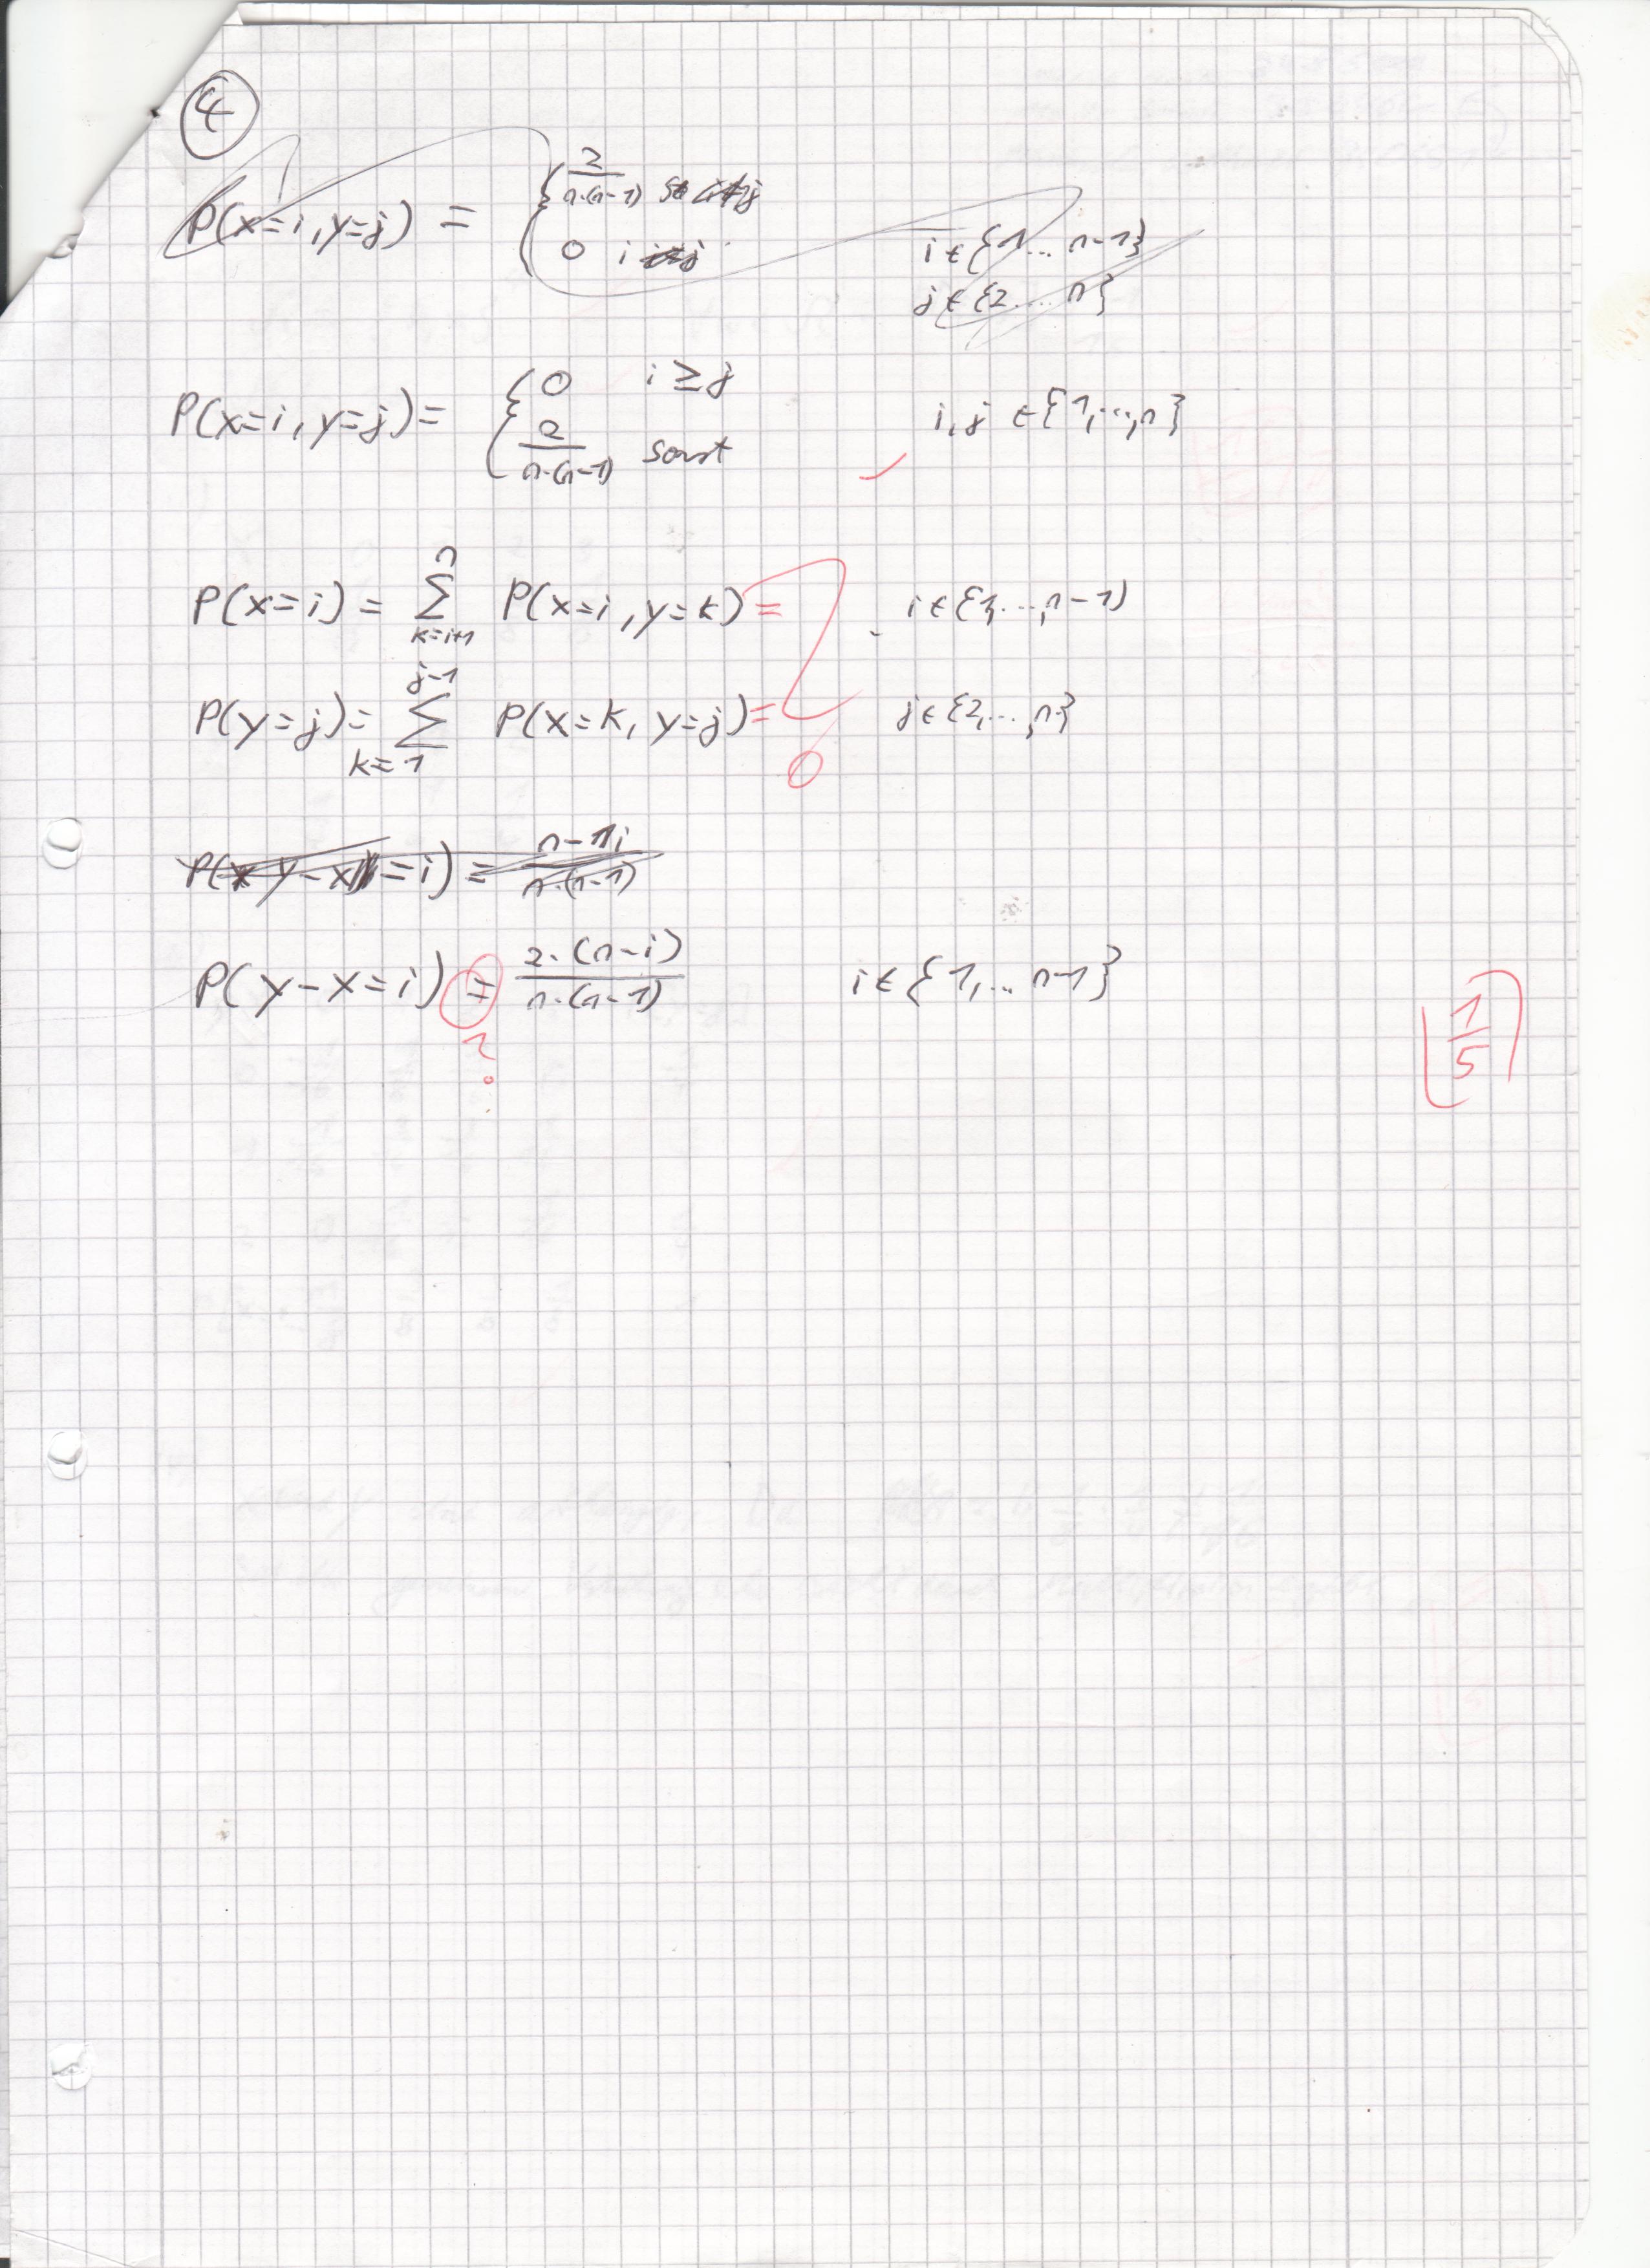 4
P(x=i, y=j) = { 2/(n·(n-1))
0 i
i ∈ {1... n-1}
j ∈ {2.... n}
P(x=i, y=j) = { 0 i ≥ j
2/(n·(n-1)) sonst
i, j ∈ {1,...,n}
P(x=i) = ∑_{k=i+1}^{n} P(x=i, y=k) = i ∈ {1,...,n-1}
P(y=j) = ∑_{k=1}^{j-1} P(x=k, y=j) = j ∈ {2,...,n}
0
P(y-x=i) = (2·(n-i))/(n·(n-1)) i ∈ {1,...n-1}
?
1/5